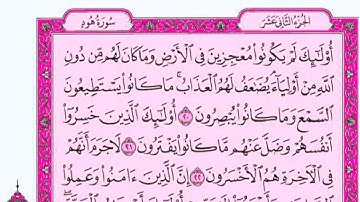 سُورَةُ هُودٍ
الجُزْءُ الثَّانِي عَشَر
أُولَٰٓئِكَ لَمْ يَكُونُوا۟ مُعْجِزِينَ فِي ٱلْأَرْضِ وَمَا كَانَ لَهُم مِّن دُونِ
ٱللَّهِ مِنْ أَوْلِيَآءَ ۘ يُضَٰعَفُ لَهُمُ ٱلْعَذَابُ ۚ مَا كَانُوا۟ يَسْتَطِيعُونَ
ٱلسَّمْعَ وَمَا كَانُوا۟ يُبْصِرُونَ ٢٠ أُو۟لَٰٓئِكَ ٱلَّذِينَ خَسِرُوٓا۟
أَنفُسَهُمْ وَضَلَّ عَنْهُم مَّا كَانُوا۟ يَفْتَرُونَ ٢١ لَا جَرَمَ أَنَّهُمْ
فِي ٱلْءَاخِرَةِ هُمُ ٱلْأَخْسَرُونَ ٢٢ إِنَّ ٱلَّذِينَ ءَامَنُوا۟ وَعَمِلُوا۟